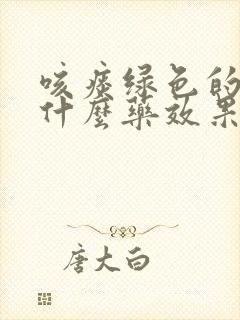 咳痰绿色的
什麼藥效果
唐大白